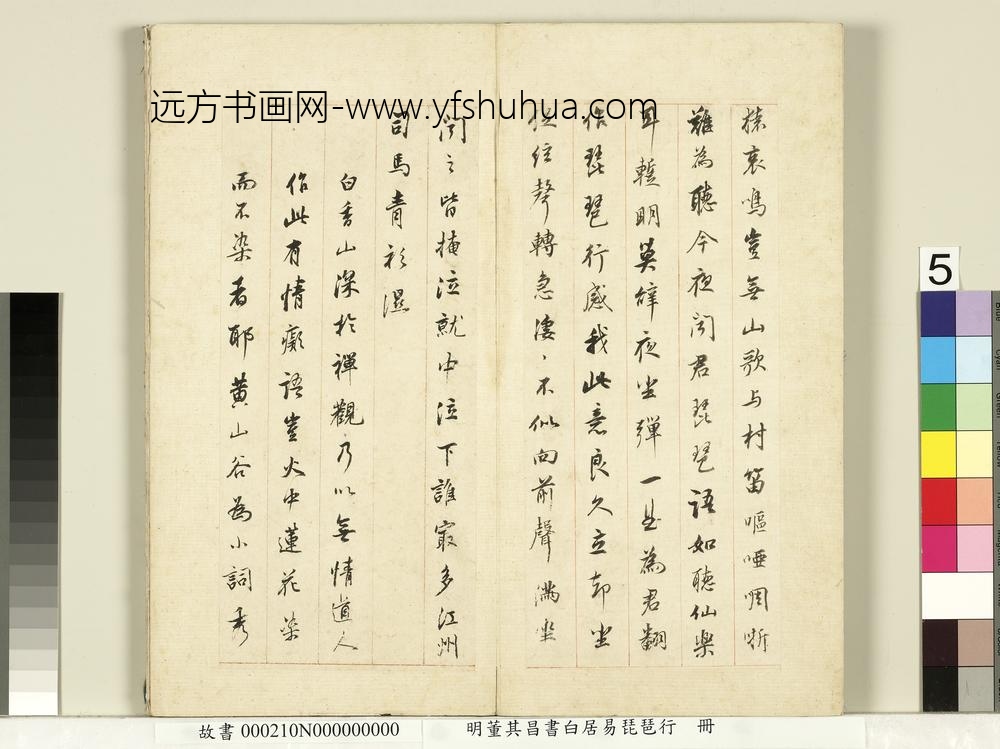 远方书画网-www.yfshuhua.com
猿哀鳴豈無山歌与村笛嘔唖啁哳
難為聽今夜闻君琵琶語如聽仙樂
耳蹔明莫辝夜坐彈一曲為君翻
作琵琶行感我此意良久立却坐
促弦聲轉急凄〻不似向前聲滿坐
闻之皆掩泣就中泣下誰冣多江州
司馬青衫濕
白香山深於禪觀乃以無情道人
作此有情癡語豈火中蓮花染
而不染者耶黄山谷為小詞秀
5
故書 000210N000000000
明董其昌書白居易琵琶行 冊